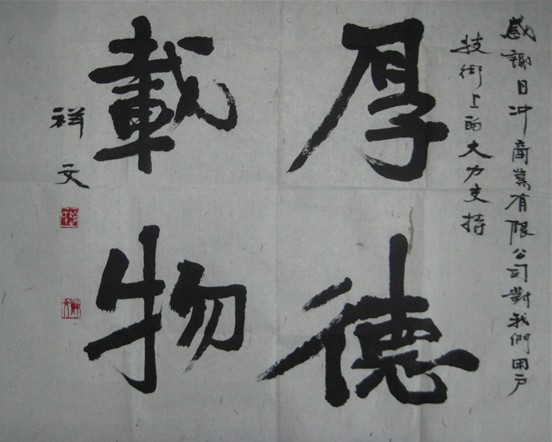 感謝日冲商業有限公司對我們用户
技術上的大力支持
厚德
載物
祥文